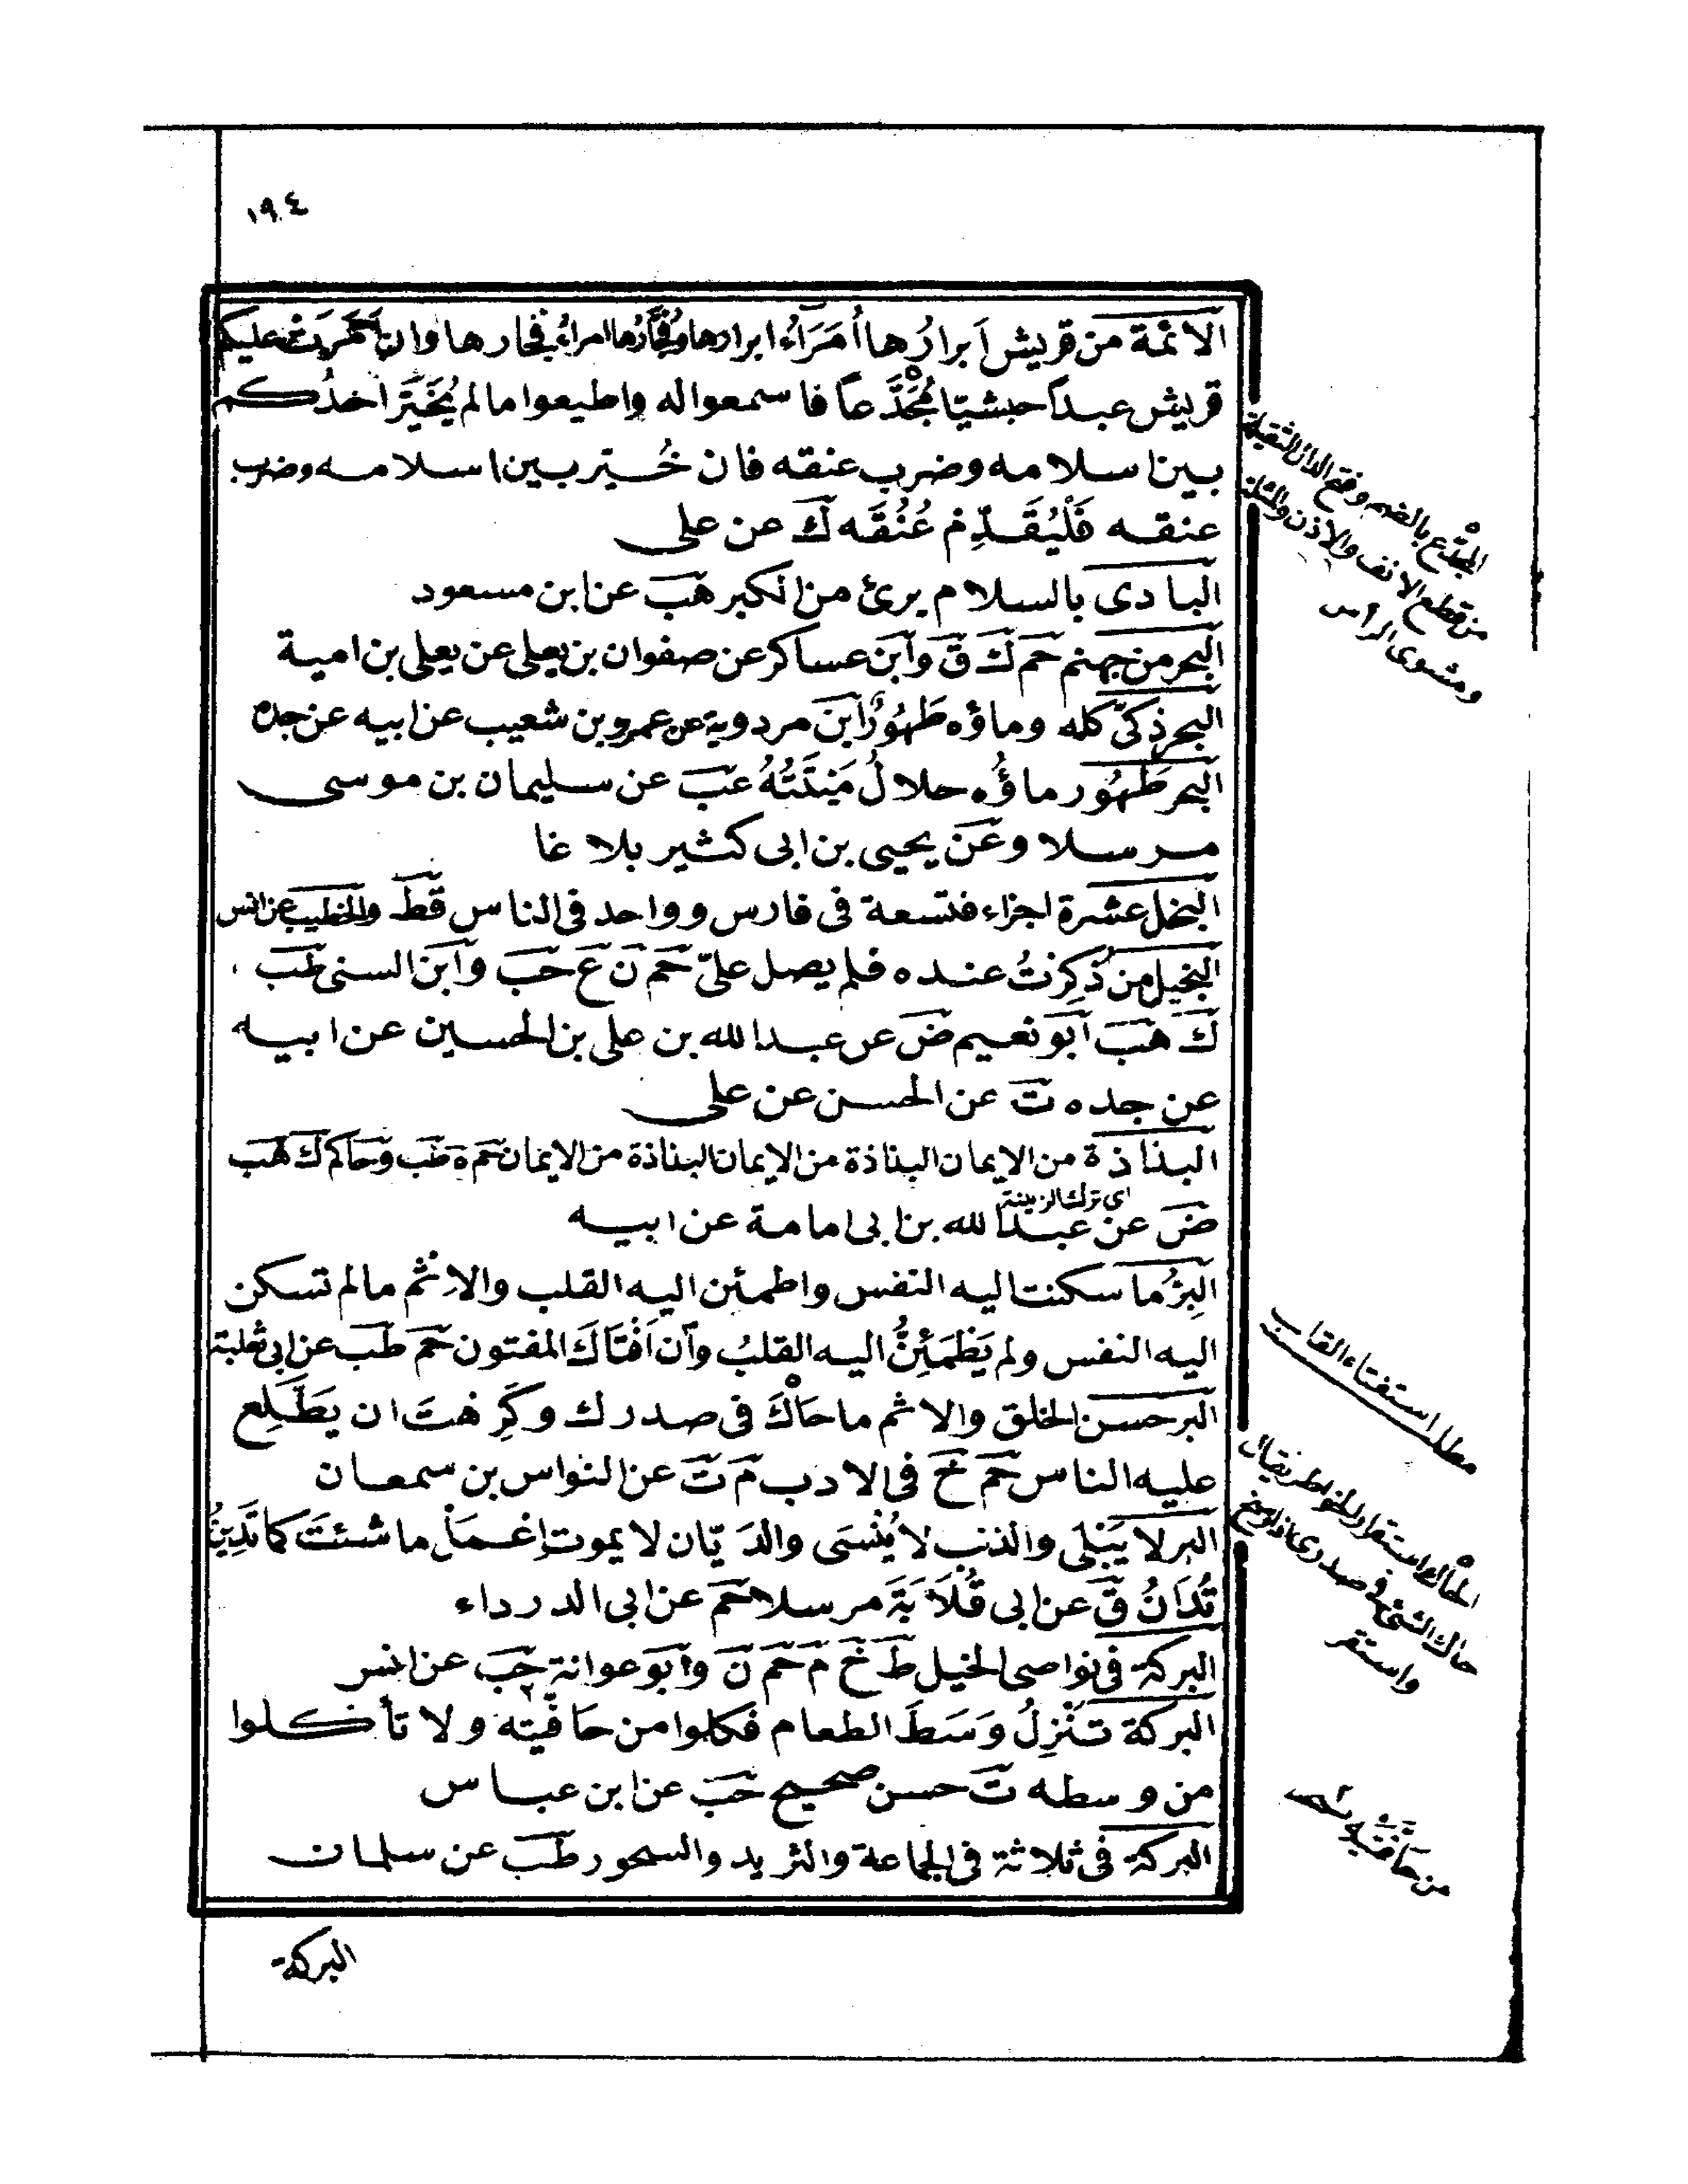 ١٩٤
الائمة من قريش اَبرارُها اُمَرَاءُ ابرارها وفُجّارُها امراءُ فجارها وان اَمَّرَتْ عليكم
قريش عبداً حبشيّا مُجَدَّعاً فاسمعوا له واطيعوا مالم يُخَيَّر احدُكم
بين اسلامه وضرب عنقه فان خُيّر بين اسلامه وضرب
عنقه فَلْيُقَدِّم عُنُقَه ك عن على
البادى بالسلام برئ من الكبر هب عن ابن مسعود
البحر من جهنم حم ك ق وابن عساكر عن صفوان بن يعلى عن يعلى بن امية
البحر ذكىّ كله وماؤه طَهُورٌ ابن مردوية عن عمرو بن شعيب عن ابيه عن جده
البحر طَهُور ماؤُه حلالُ مَيْتَتُهُ عب عن سليمان بن موسى
مرسلا وعن يحيى بن ابى كثير بلاغا
البخل عشرة اجزاء فتسعة فى فارس وواحد فى الناس قط والخطيب عن انس
البخيل من ذُكِرْتُ عنده فلم يصل علىّ حم ن ع حب وابن السنى طب
ك هب ابو نعيم ض عن عبدالله بن على بن الحسين عن ابيه
عن جده ت عن الحسن عن على
البذاذة من الايمان البذاذة من الايمان البذاذة من الايمان حم ه طب وحاكم ك هب
اى ترك الزينة
ض عن عبدالله بن ابى امامة عن ابيه
البِرُّ ما سكنت اليه النفس واطمئن اليه القلب والاِثم مالم تسكن
اليه النفس ولم يَطْمَئِنَّ اليه القلبُ وان اَفْتَاكَ المفتون حم طب عن ابى ثعلبة
البر حسن الخلق والاثم ما حَاكَ فى صدرك وكَرِهتَ ان يَطَّلِع
عليه الناس حم خ فى الادب م ت عن النواس بن سمعان
البر لا يَبْلى والذنب لا يُنْسَى والدَيّان لا يموت اِعْمَلْ ما شئتَ كما تَدِينُ
تُدَانُ ق عن ابى قُلَابَةَ مرسلا حم عن ابى الدرداء
البركة فى نواصى الخيل ط خ م حم ن وابو عوانة حب عن انس
البركة تَنْزِلُ وَسَطَ الطعام فكلوا من حافَّيْته ولا تأكلوا
من وسطه ت حسن صحيح حب عن ابن عباس
البركة فى ثلاثة فى الجماعة والثريد والسحور طب عن سلمان
المجَدَّع بالضم وفتح الدال الثقيلة
من قطع الانف والاذن
ومشوى الرأس
استفتاء القلب
حاك الشئ فى صدرى اذا رسخ
واستقر
من حافَّتَيْه
البركة